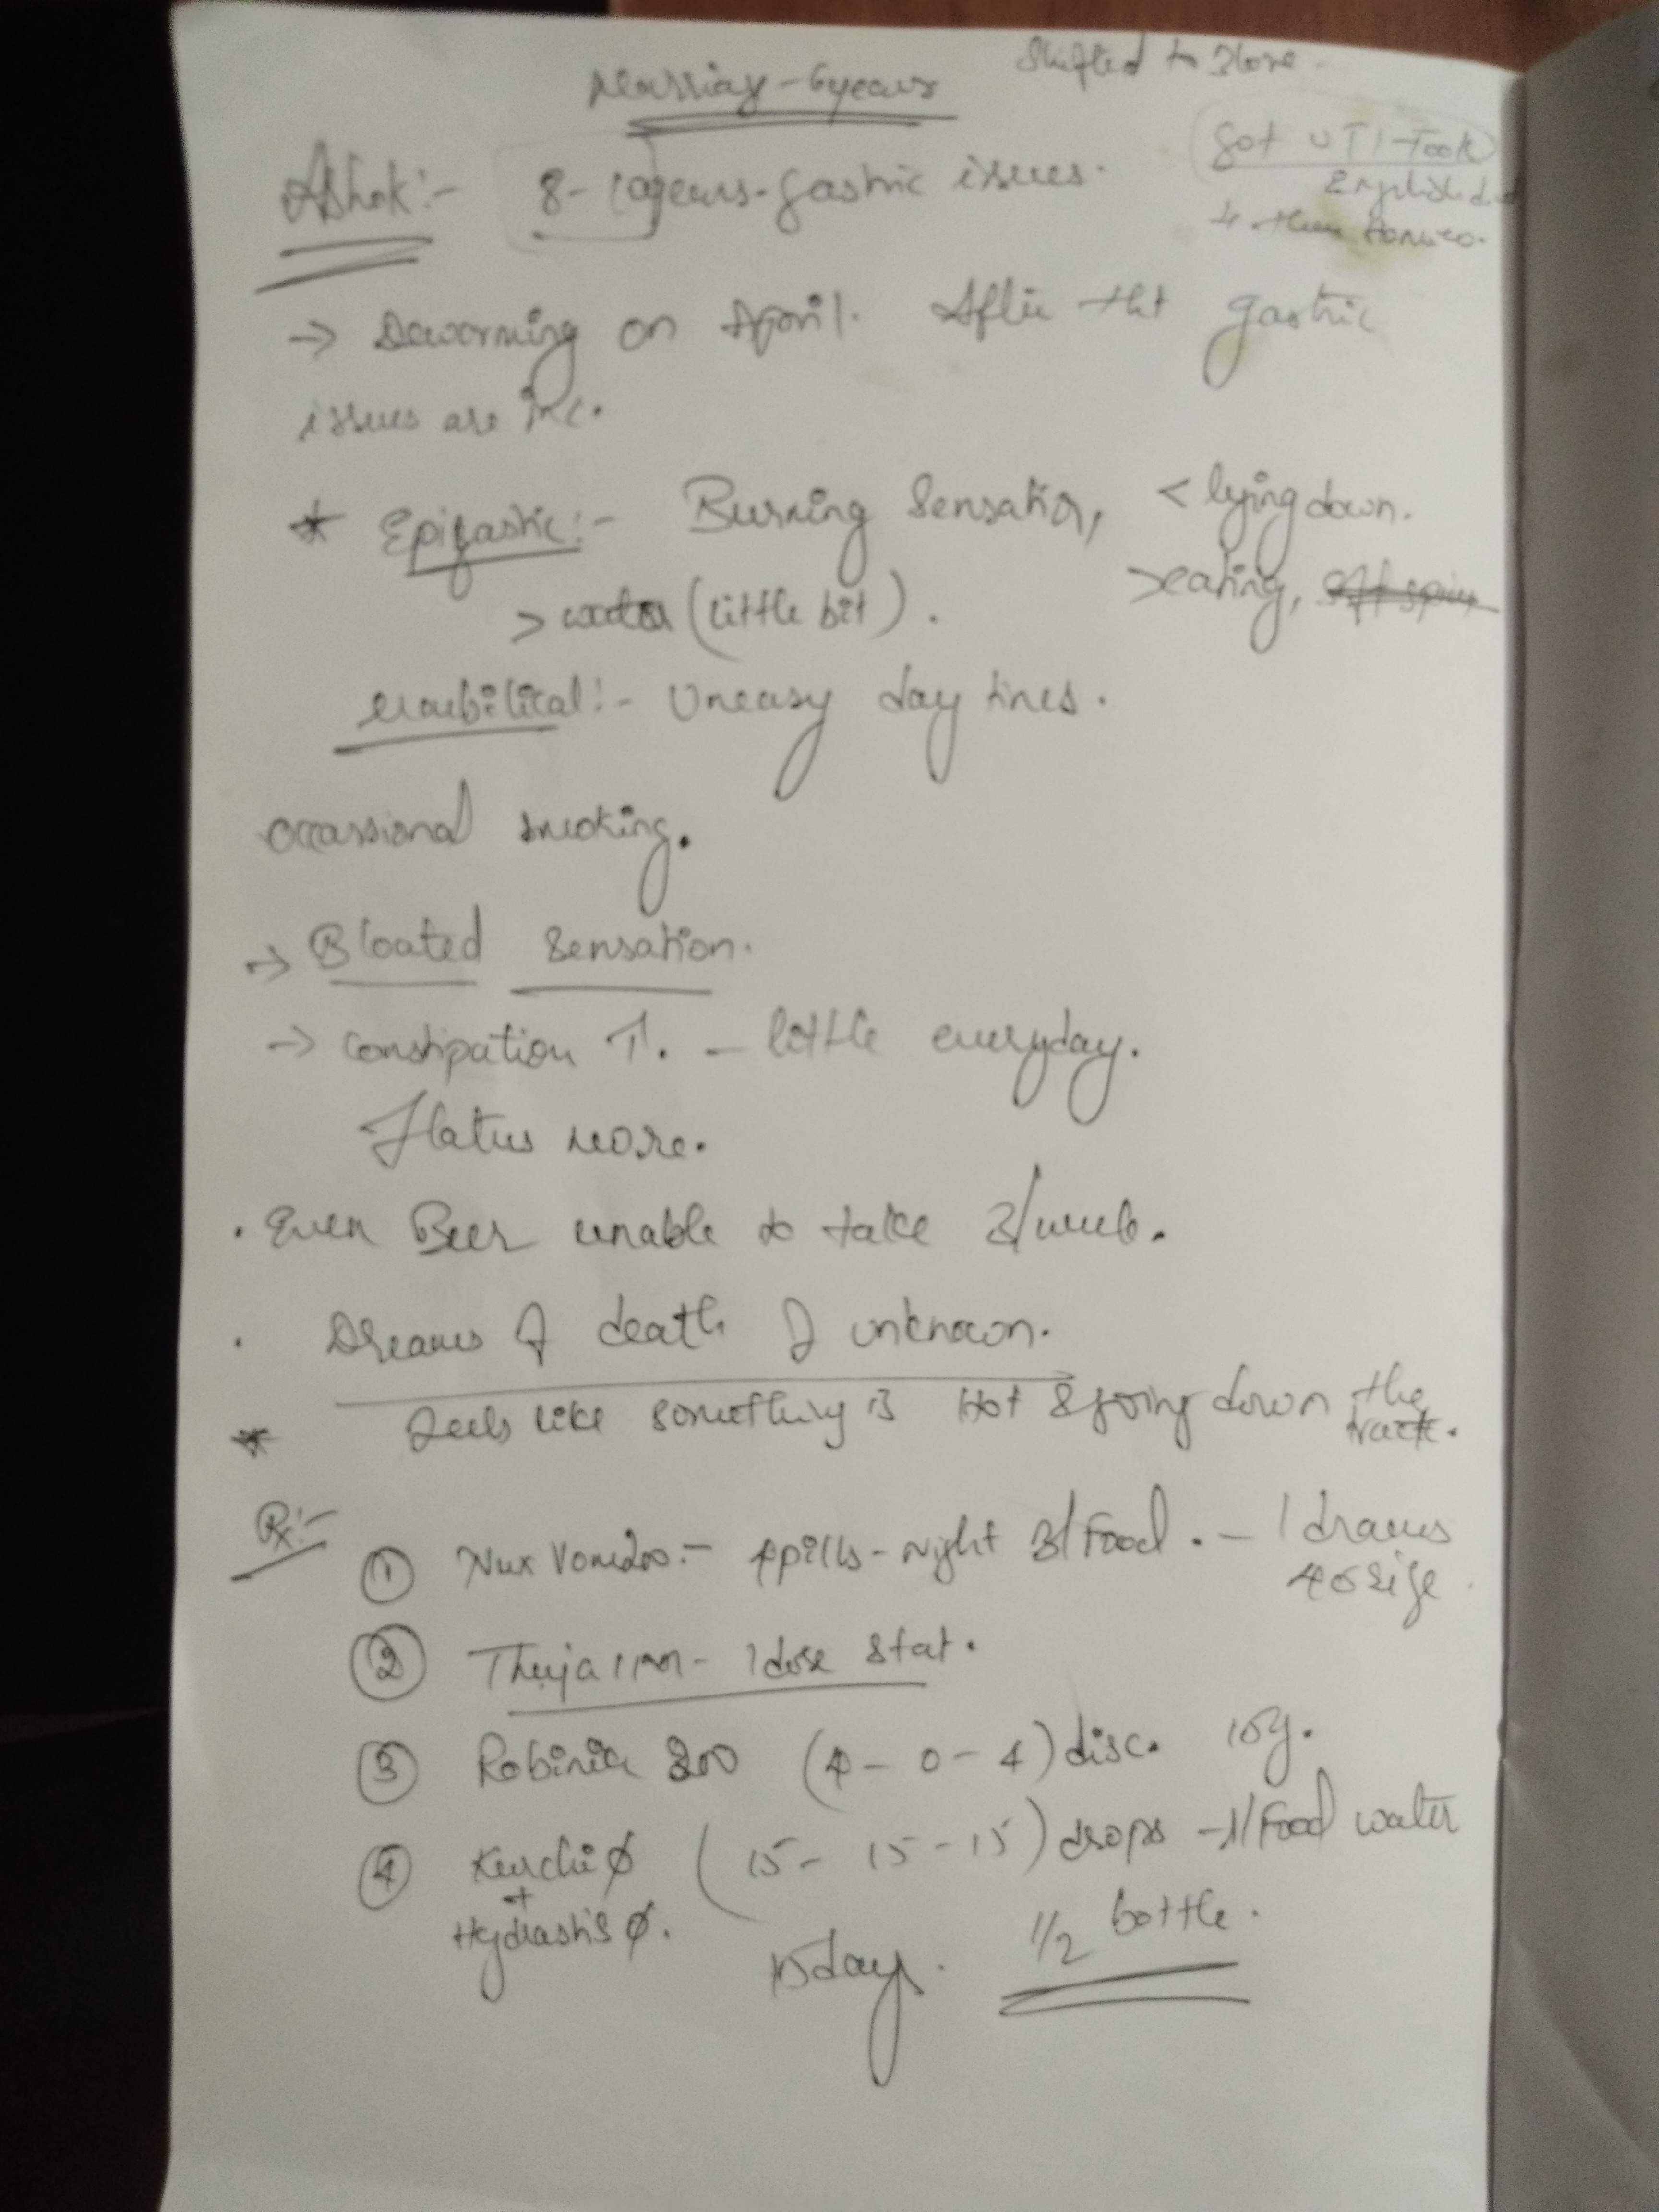 Marriag - 6years
Shifted to Blore.
Ashok:- 8-10years - gastric issues.
Got UTI - Took
English
then Homeo.
→ Deworming on April. After tht gastric
issues are inc.
* Epigastic:- Burning Sensation, < lying down.
> water (little bit). > eating,
Umbilical:- Uneasy day times.
Occassional smoking.
→ Bloated Sensation.
→ Constipation ↑. - little everyday.
Flatus more.
. Even Beer unable to take
. Dreams of death of unknown.
* Feels like something is Hot & going down the
tract.
Rx:-
① Nux Vom 200:- 4pills - night B/Food. - 1 drams
40 size.
② Thuja 1M - 1dose stat.
③ Robinia 200 (4 - 0 - 4) disc. 10g.
④ Kurchi ϕ (15 - 15 - 15) drops - Food water
+
Hydrastis ϕ.
15days. 1/2 bottle.